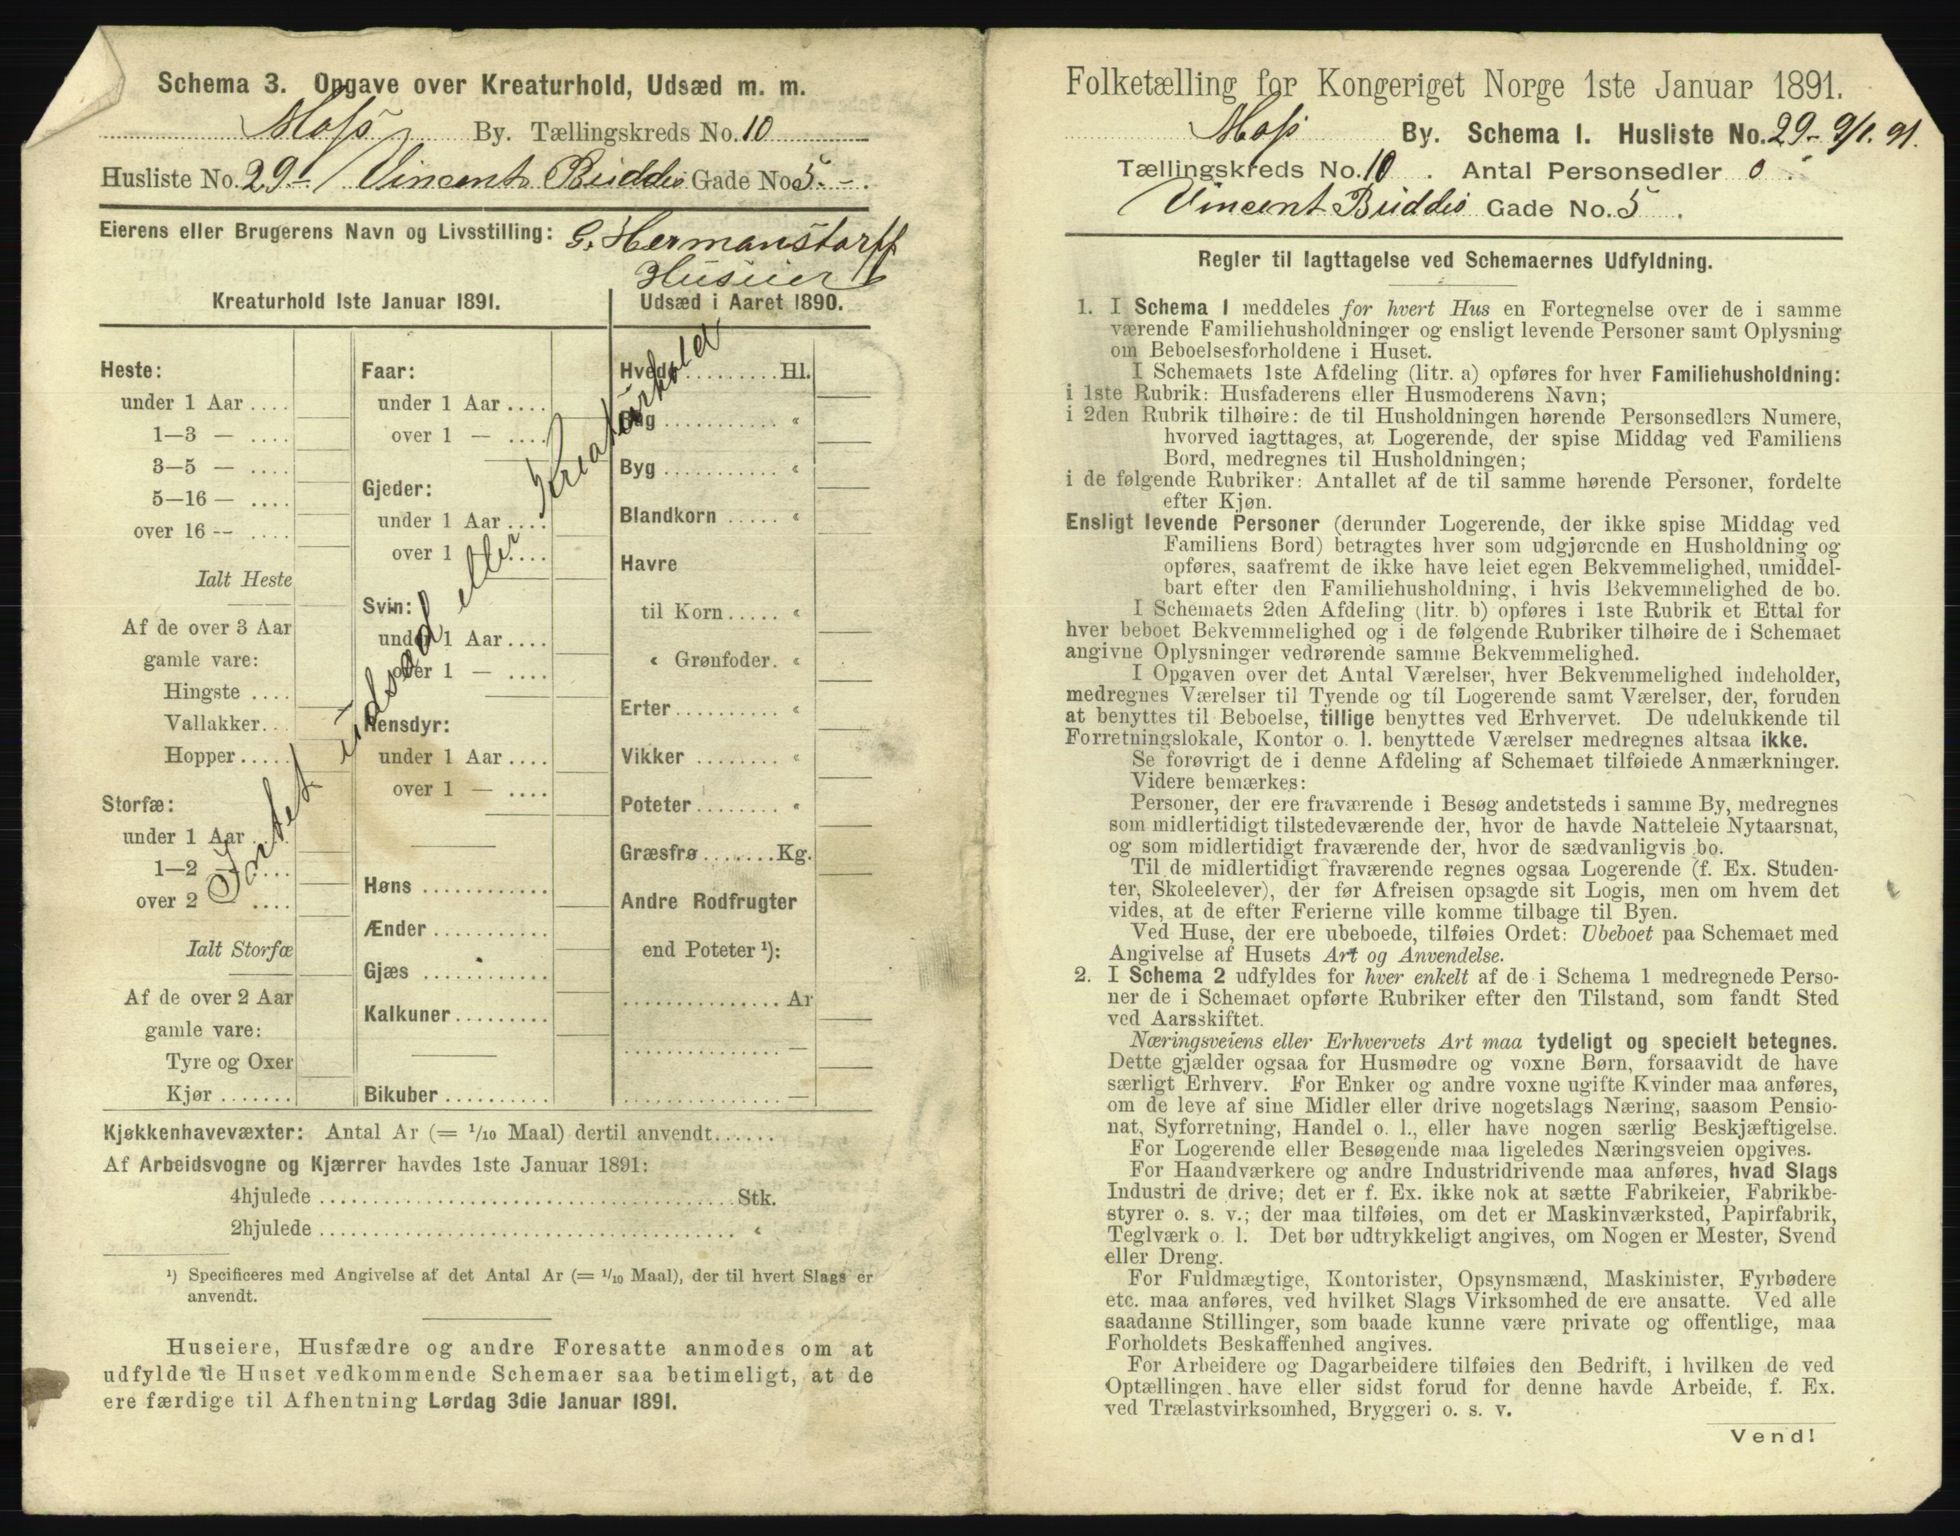 Schema 3. Opgave over Kreaturhold, Udsæd m. m.
Moss By. Tællingskreds No. 10
Husliste No. 29 - Vincent Buddes Gade No 5. -.
Eierens eller Brugerens Navn og Livsstilling: G. Hermanstorff
Huseier
Kreaturhold 1ste Januar 1891.
Udsæd i Aaret 1890.
Intet udsæd eller Kreaturhold
Heste:
under 1 Aar ....
1—3 — ....
3—5 — ....
5—16 — ....
over 16 — ....
Ialt Heste
Af de over 3 Aar
gamle vare:
Hingste ....
Vallakker...
Hopper.....
Storfæ:
under 1 Aar ....
1—2 — ....
over 2 ....
Ialt Storfæ
Af de over 2 Aar
gamle vare:
Tyre og Oxer
Kjør .......
Faar:
under 1 Aar ....
over 1 — ....
Gjeder:
under 1 Aar ....
over 1 ....
Svin:
under 1 Aar ....
over 1 — ....
Rensdyr:
under 1 Aar ....
over 1 — ....
Høns ............
Ænder ...........
Gjæs ............
Kalkuner.........
Bikuber ..........
Hvede ..........Hl.
Rug ........... "
Byg ........... "
Blandkorn ..... "
Havre
til Korn ..... "
" Grønfoder. "
Erter.......... "
Vikker ........ "
Poteter ........ "
Græsfrø ........Kg.
Andre Rodfrugter
end Poteter ¹):
...............Ar
............... —
............... —
Kjøkkenhavevæxter: Antal Ar (= 1/10 Maal) dertil anvendt......
Af Arbeidsvogne og Kjærrer havdes 1ste Januar 1891:
4hjulede ........................................Stk.
2hjulede ........................................ "
¹) Specificeres med Angivelse af det Antal Ar (= 1/10 Maal), der til hvert Slags er
anvendt.
Huseiere, Husfædre og andre Foresatte anmodes om at
udfylde de Huset vedkommende Schemaer saa betimeligt, at de
ere færdige til Afhentning Lørdag 3die Januar 1891.
Folketælling for Kongeriget Norge 1ste Januar 1891.
Moss By. Schema I. Husliste No. 29 - 9/1. 91.
Tællingskreds No. 10 . Antal Personsedler 0 .
Vincent Buddes Gade No. 5 .
Regler til Iagttagelse ved Schemaernes Udfyldning.
1. I Schema I meddeles for hvert Hus en Fortegnelse over de i samme
værende Familiehusholdninger og ensligt levende Personer samt Oplysning
om Beboelsesforholdene i Huset.
I Schemaets 1ste Afdeling (litr. a) opføres for hver Familiehusholdning:
i 1ste Rubrik: Husfaderens eller Husmoderens Navn;
i 2den Rubrik tilhøire: de til Husholdningen hørende Personsedlers Numere,
hvorved iagttages, at Logerende, der spise Middag ved Familiens
Bord, medregnes til Husholdningen;
i de følgende Rubriker: Antallet af de til samme hørende Personer, fordelte
efter Kjøn.
Ensligt levende Personer (derunder Logerende, der ikke spise Middag ved
Familiens Bord) betragtes hver som udgjørende en Husholdning og
opføres, saafremt de ikke have leiet egen Bekvemmelighed, umiddel-
bart efter den Familiehusholdning, i hvis Bekvemmelighed de bo.
I Schemaets 2den Afdeling (litr. b) opføres i 1ste Rubrik et Ettal for
hver beboet Bekvemmelighed og i de følgende Rubriker tilhøire de i Schemaet
angivne Oplysninger vedrørende samme Bekvemmelighed.
I Opgaven over det Antal Værelser, hver Bekvemmelighed indeholder,
medregnes Værelser til Tyende og til Logerende samt Værelser, der, foruden
at benyttes til Beboelse, tillige benyttes ved Erhvervet. De udelukkende til
Forretningslokale, Kontor o. l. benyttede Værelser medregnes altsaa ikke.
Se forøvrigt de i denne Afdeling af Schemaet tilføiede Anmærkninger.
Videre bemærkes:
Personer, der ere fraværende i Besøg andetsteds i samme By, medregnes
som midlertidigt tilstedeværende der, hvor de havde Natteleie Nytaarsnat,
og som midlertidigt fraværende der, hvor de sædvanligvis bo.
Til de midlertidigt fraværende regnes ogsaa Logerende (f. Ex. Studen-
ter, Skoleelever), der før Afreisen opsagde sit Logis, men om hvem det
vides, at de efter Ferierne ville komme tilbage til Byen.
Ved Huse, der ere ubeboede, tilføies Ordet: Ubeboet paa Schemaet med
Angivelse af Husets Art og Anvendelse.
2. I Schema 2 udfyldes for hver enkelt af de i Schema 1 medregnede Perso-
ner de i Schemaet opførte Rubriker efter den Tilstand, som fandt Sted
ved Aarsskiftet.
Næringsveiens eller Erhvervets Art maa tydeligt og specielt betegnes.
Dette gjælder ogsaa for Husmødre og voxne Børn, forsaavidt de have
særligt Erhverv. For Enker og andre voxne ugifte Kvinder maa anføres,
om de leve af sine Midler eller drive nogetslags Næring, saasom Pensio-
nat, Syforretning, Handel o. l., eller have nogen særlig Beskjæftigelse.
For Logerende eller Besøgende maa ligeledes Næringsveien opgives.
For Haandværkere og andre Industridrivende maa anføres, hvad Slags
Industri de drive; det er f. Ex. ikke nok at sætte Fabrikeier, Fabrikbe-
styrer o. s. v.; der maa tilføies, om det er Maskinværksted, Papirfabrik,
Teglværk o. l. Det bør udtrykkeligt angives, om Nogen er Mester, Svend
eller Dreng.
For Fuldmægtige, Kontorister, Opsynsmænd, Maskinister, Fyrbødere
etc. maa anføres, ved hvilket Slags Virksomhed de ere ansatte. Ved alle
saadanne Stillinger, som baade kunne være private og offentlige, maa
Forholdets Beskaffenhed angives.
For Arbeidere og Dagarbeidere tilføies den Bedrift, i hvilken de ved
Optællingen have eller sidst forud for denne havde Arbeide, f. Ex.
ved Trælastvirksomhed, Bryggeri o. s. v.
Vend!